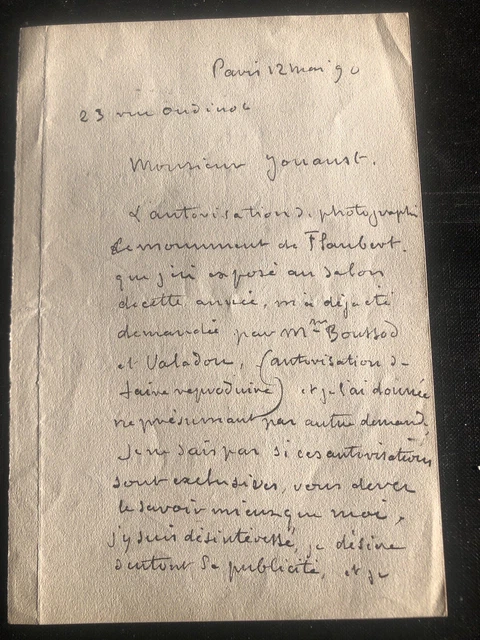 Paris 12 mai 90
23 rue Oudinot
Monsieur Jouaust.
L'autorisation de photographier
le monument de Flaubert.
que j'ai exposé au salon
de cette année, m'a déja été
demandée par Mrs Boussod
et Valadon, (autorisation de
faire reproduire) et je l'ai donnée
ne présumant pas autre demande,
Je ne sais pas si ces autorisations
sont exclusives, vous devez
le savoir mieux que moi,
j'y suis désintéressé, je désire
surtout la publicité, et je